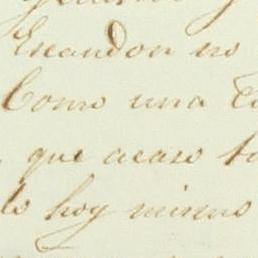 Escandon no
Como una
que acaso
lo hoy mismo